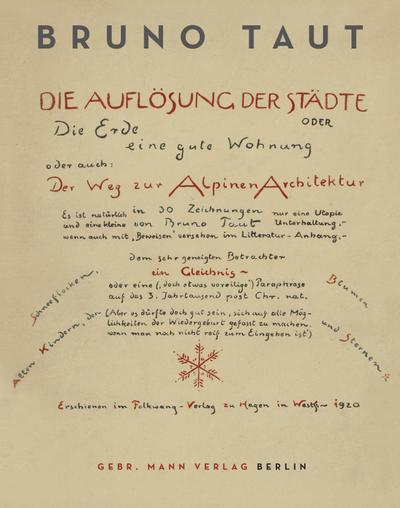 BRUNO TAUT
DIE AUFLÖSUNG DER STÄDTE
ODER
Die Erde
eine gute Wohnung
oder auch:
Der Weg zur Alpinen Architektur
Es ist natürlich in 30 Zeichnungen nur eine Utopie
und eine kleine von Bruno Taut Unterhaltung,-
wenn auch mit „Beweisen" versehen im Litteratur-Anhang.-
dem sehr geneigten Betrachter
ein Gleichnis ~
oder eine (, doch etwas voreilige') Paraphrase
auf das 3. Jahrtausend post Chr. nat.
(Aber es dürfte doch gut sein, sich auf alle Mög-
lichkeiten der Wiedergeburt gefasst zu machen,
wenn man noch nicht reif zum Eingehen ist)
Allen Kindern, den Schneeflocken,
Blumen und Sternen
Erschienen im Folkwang-Verlag zu Hagen in Westf. – 1920
GEBR. MANN VERLAG BERLIN